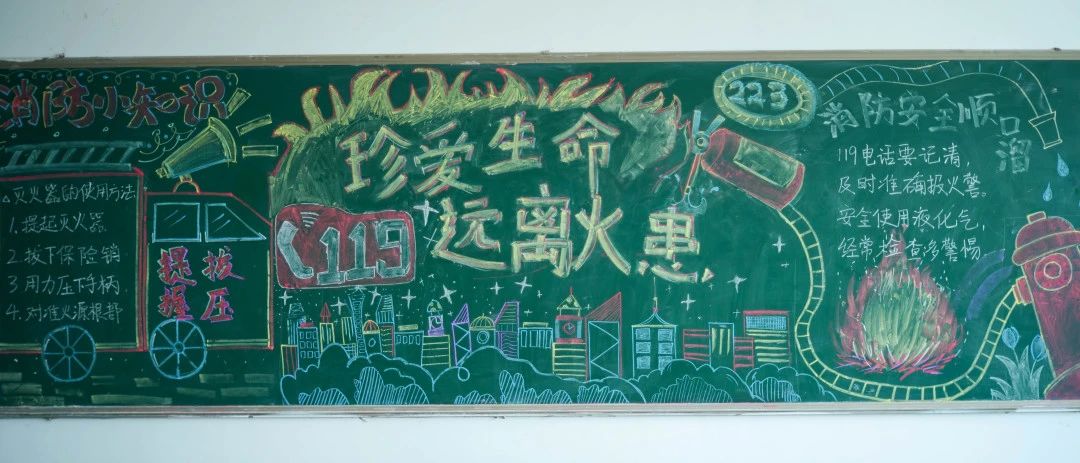 消防小知识
灭火器的使用方法
1.提起灭火器
2.拔下保险销
3用力压下手柄
4.对准火源根部
提 拔
握 压
119
珍爱生命
远离火患
223
消防安全顺口溜
119电话要记清，
及时准确报火警。
安全使用液化气，
经常检查多警惕。